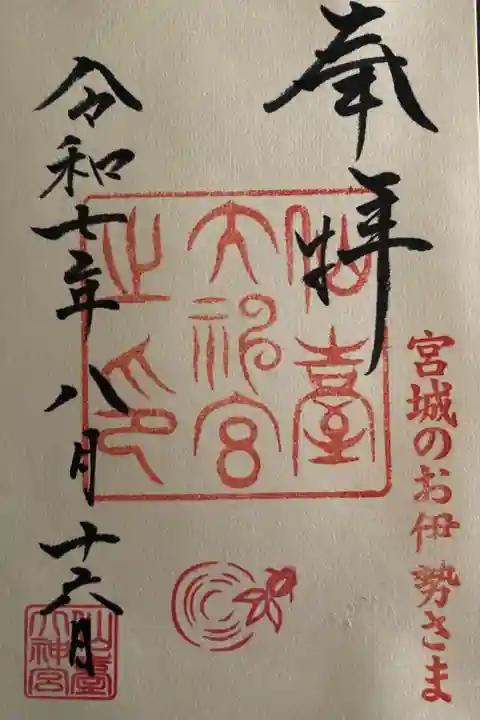 奉拝
宮城のお伊勢さま
仙臺
大神宮
之印
令和七年八月十六日
仙臺
大神宮